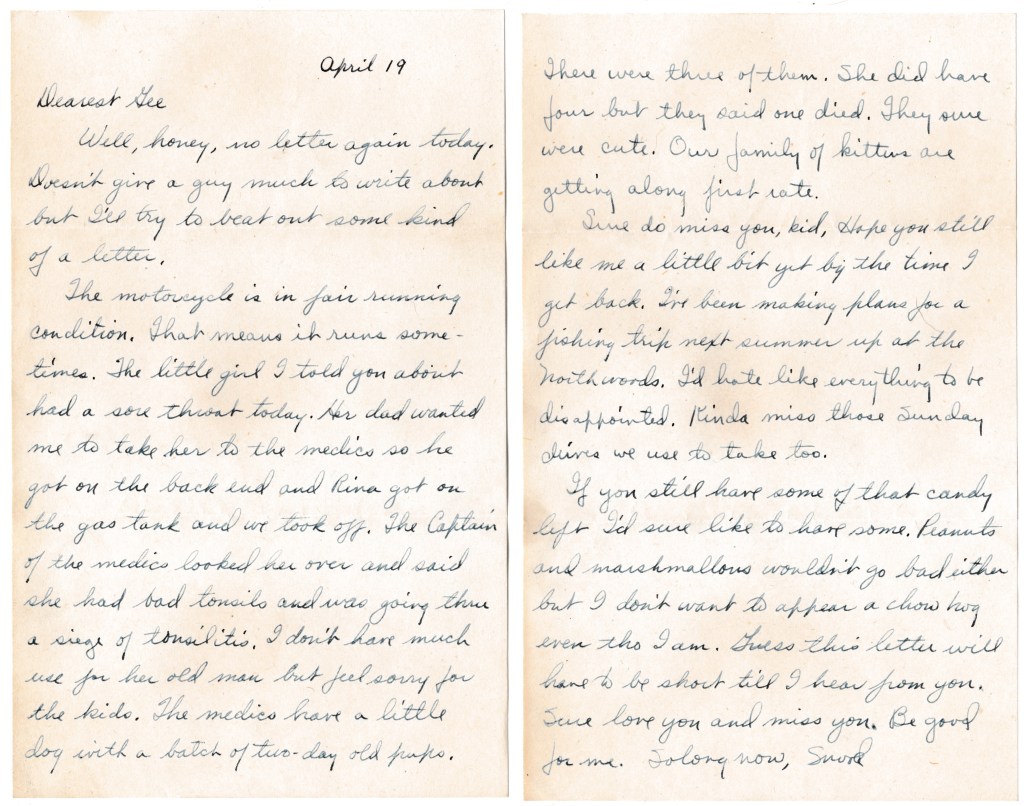 April 19
Dearest Gee
Well, honey, no letter again today.
Doesn't give a guy much to write about
but I'll try to beat out some kind
of a letter.
The motorcycle is in fair running
condition. That means it runs some-
times. The little girl I told you about
had a sore throat today. Her dad wanted
me to take her to the medics so he
got on the back end and Rina got on
the gas tank and we took off. The Captain
of the medics looked her over and said
she had bad tonsils and was going thru
a siege of tonsilitis. I don't have much
use for her old man but feel sorry for
the kids. The medics have a little
dog with a batch of two-day old pups.
There were three of them. She did have
four but they said one died. They sure
were cute. Our family of kittens are
getting along first rate.
Sure do miss you, kid, Hope you still
like me a little bit yet by the time I
get back. I've been making plans for a
fishing trip next summer up at the
Northwoods. I'd hate like everything to be
disappointed. Kinda miss those Sunday
drives we use to take too.
If you still have some of that candy
left I'd sure like to have some. Peanuts
and marshmallows wouldn't go bad either
but I don't want to appear a chow hog
even tho I am. Guess this letter will
have to be short till I hear from you.
Sure love you and miss you. Be good
for me. So long now,